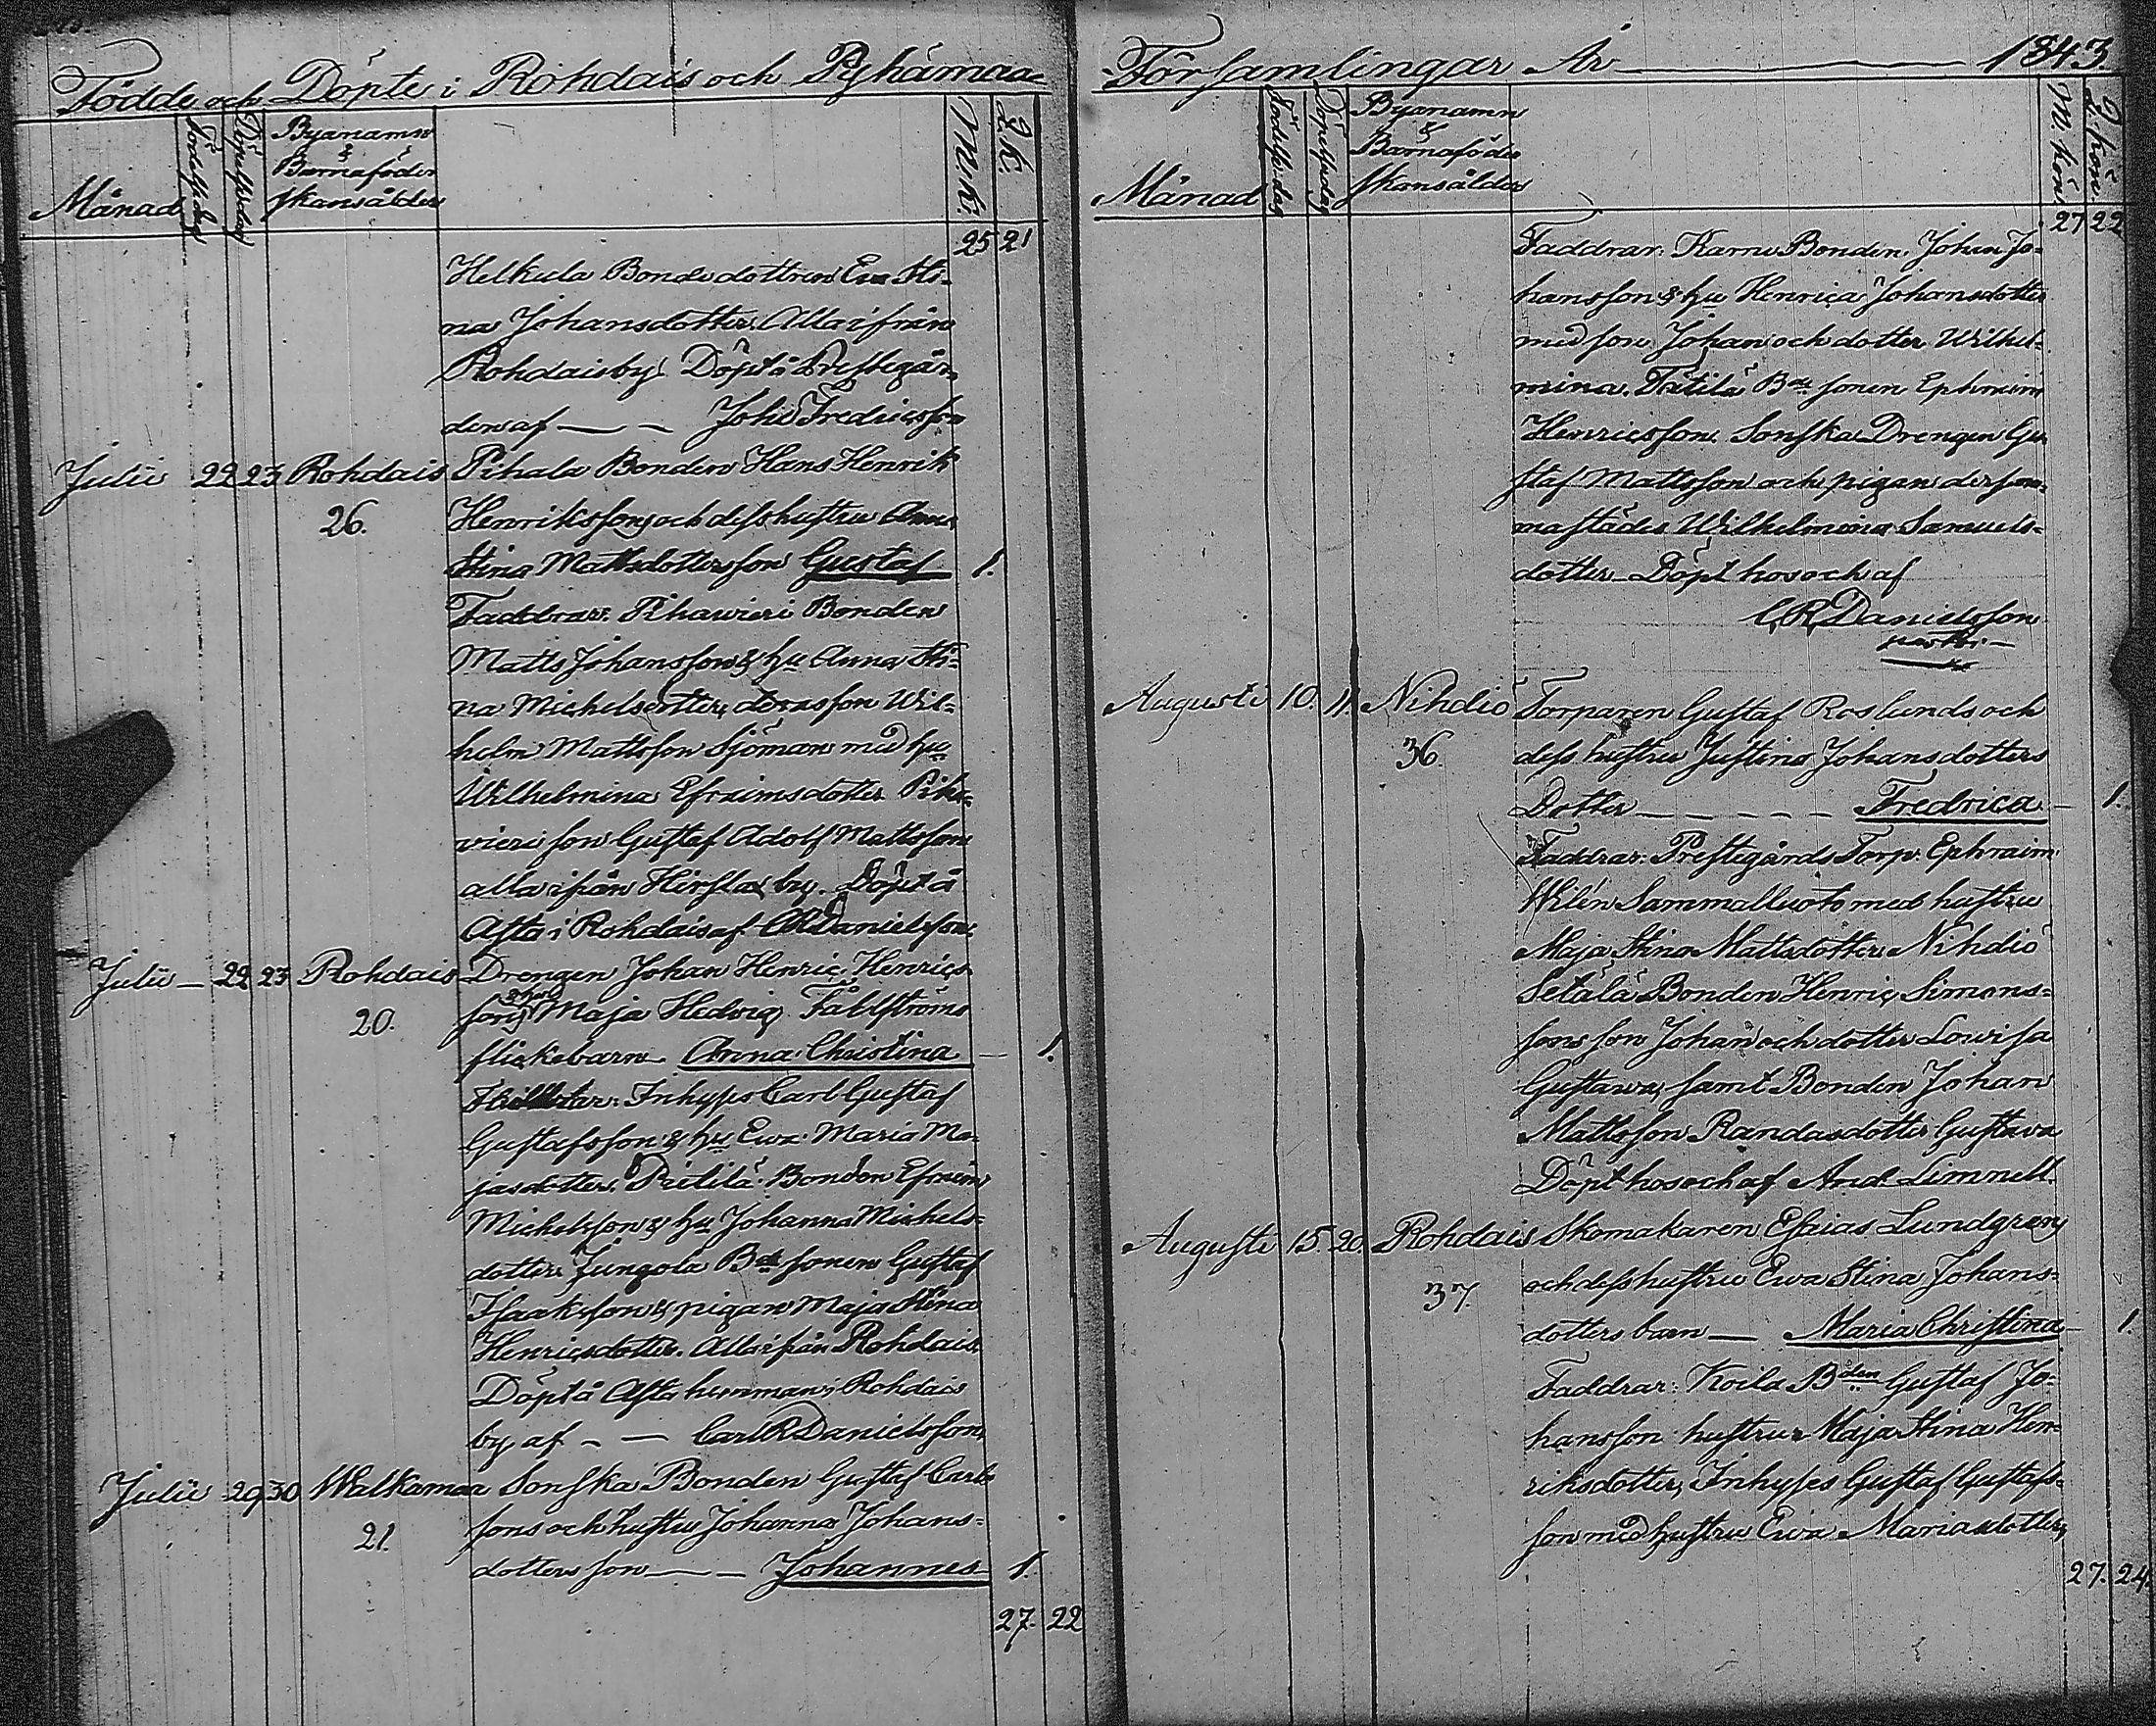 Födde och Döpte i Rohdais och Pyhämaa
Månad
Födelsedag
Döpelsedag
Byanamn
&
Barnaföder
skansålder
M. K.
Q. K.
25 21
Helkula Bonde dottren Eva Sti-
na Johansdotter. Alla ifrån
Rohdais by. Döpt å Prestegår
den af — — Joh. Fredricsson
Julii 22 23 Rohdais Pihala Bonden Hans Henrik
26. Henriksons och dess hustru Anna
Stina Mattsdotters son Gustaf 1.
Faddrar: Pihawieri Bonden
Matts Johansson & hu Anna Sti-
na Michelsdotter, deras son Wil-
helm Mattsson Sjöman med hu
Wilhelmina Efraimsdotter Piha-
wieri son Gustaf Adolf Mattsson
alla ifrån Hirsla by. Döpt å
Asta i Rohdais af CRDanielsson
Julii — 22 23 Rohdais Drengen Johan Henric Henrics
20. sons & hus Maja Hedvig Fallströms
flickebarn Anna Christina — 1.
Inhyses Carl Gustaf
Gustafsson & hu Eva Maria Ma-
jasdotter. Pietilä Bonden Efraim
Michelsson & hu Johanna Michels-
dotter. Jungola Bde sonen Gustaf
Isaaksson & pigan Maja Stina
Henricsdotter. Alla ifrån Rohdais.
Döpt å Asta hemman i Rohdais
by af — — Carl R Danielsson
Julii 29 30 Walkamaa Sonska Bonden Gustaf Carls
21. sons och hustru Johanna Johans-
dotters son — — Johannes 1.
27. 22
Församlingar År — 1843
Månad
Födelsedag
Döpelsedag
Byanamn
&
Barnaföder
skansålder
M. kön
Q. kön.
27 22
Faddrar: Karru Bonden Johan Jo-
hansson & hu Henrica Johansdotter
med son Johan och dotter Wilhel-
mina. Tätilä Bde sonen Ephraim
Henricsson. Sonska Drengen Gu
staf Mattsson och pigan dersam-
mastädes Wilhelmina Samuels-
dotter. Döpt hos och af
C,R, Danielsson
Augusti 10. 11. Nihdiö Torparen Gustaf Roslunds och
36. dess hustru Justina Johansdotters
Dotter — — — — — Fredrica — 1.
Faddrar: Prestegårds Torp. Ephraim
Wilén Sammalluoto med hustru
Maja Stina Mattsdotter. Nihdiö
Setälä Bonden Henric Simons-
sons son Johan och dotter Lovisa
Gustava, samt Bonden Johan
Mattsson Randas dotter Gustava
Döpt hos och af And. Limnell.
Augusti 15. 20. Rohdais Skomakaren Esaias Lundgrens
37. och dess hustru Ewa Stina Johans-
dotters barn — Maria Christina — 1.
Faddrar: Koila Bden Gustaf Jo-
hansson hustrun Maja Stina Hen-
riksdotter, Inhyses Gustaf Gustafs-
son med hustru Ewa Mariasdotter,
27. 24.